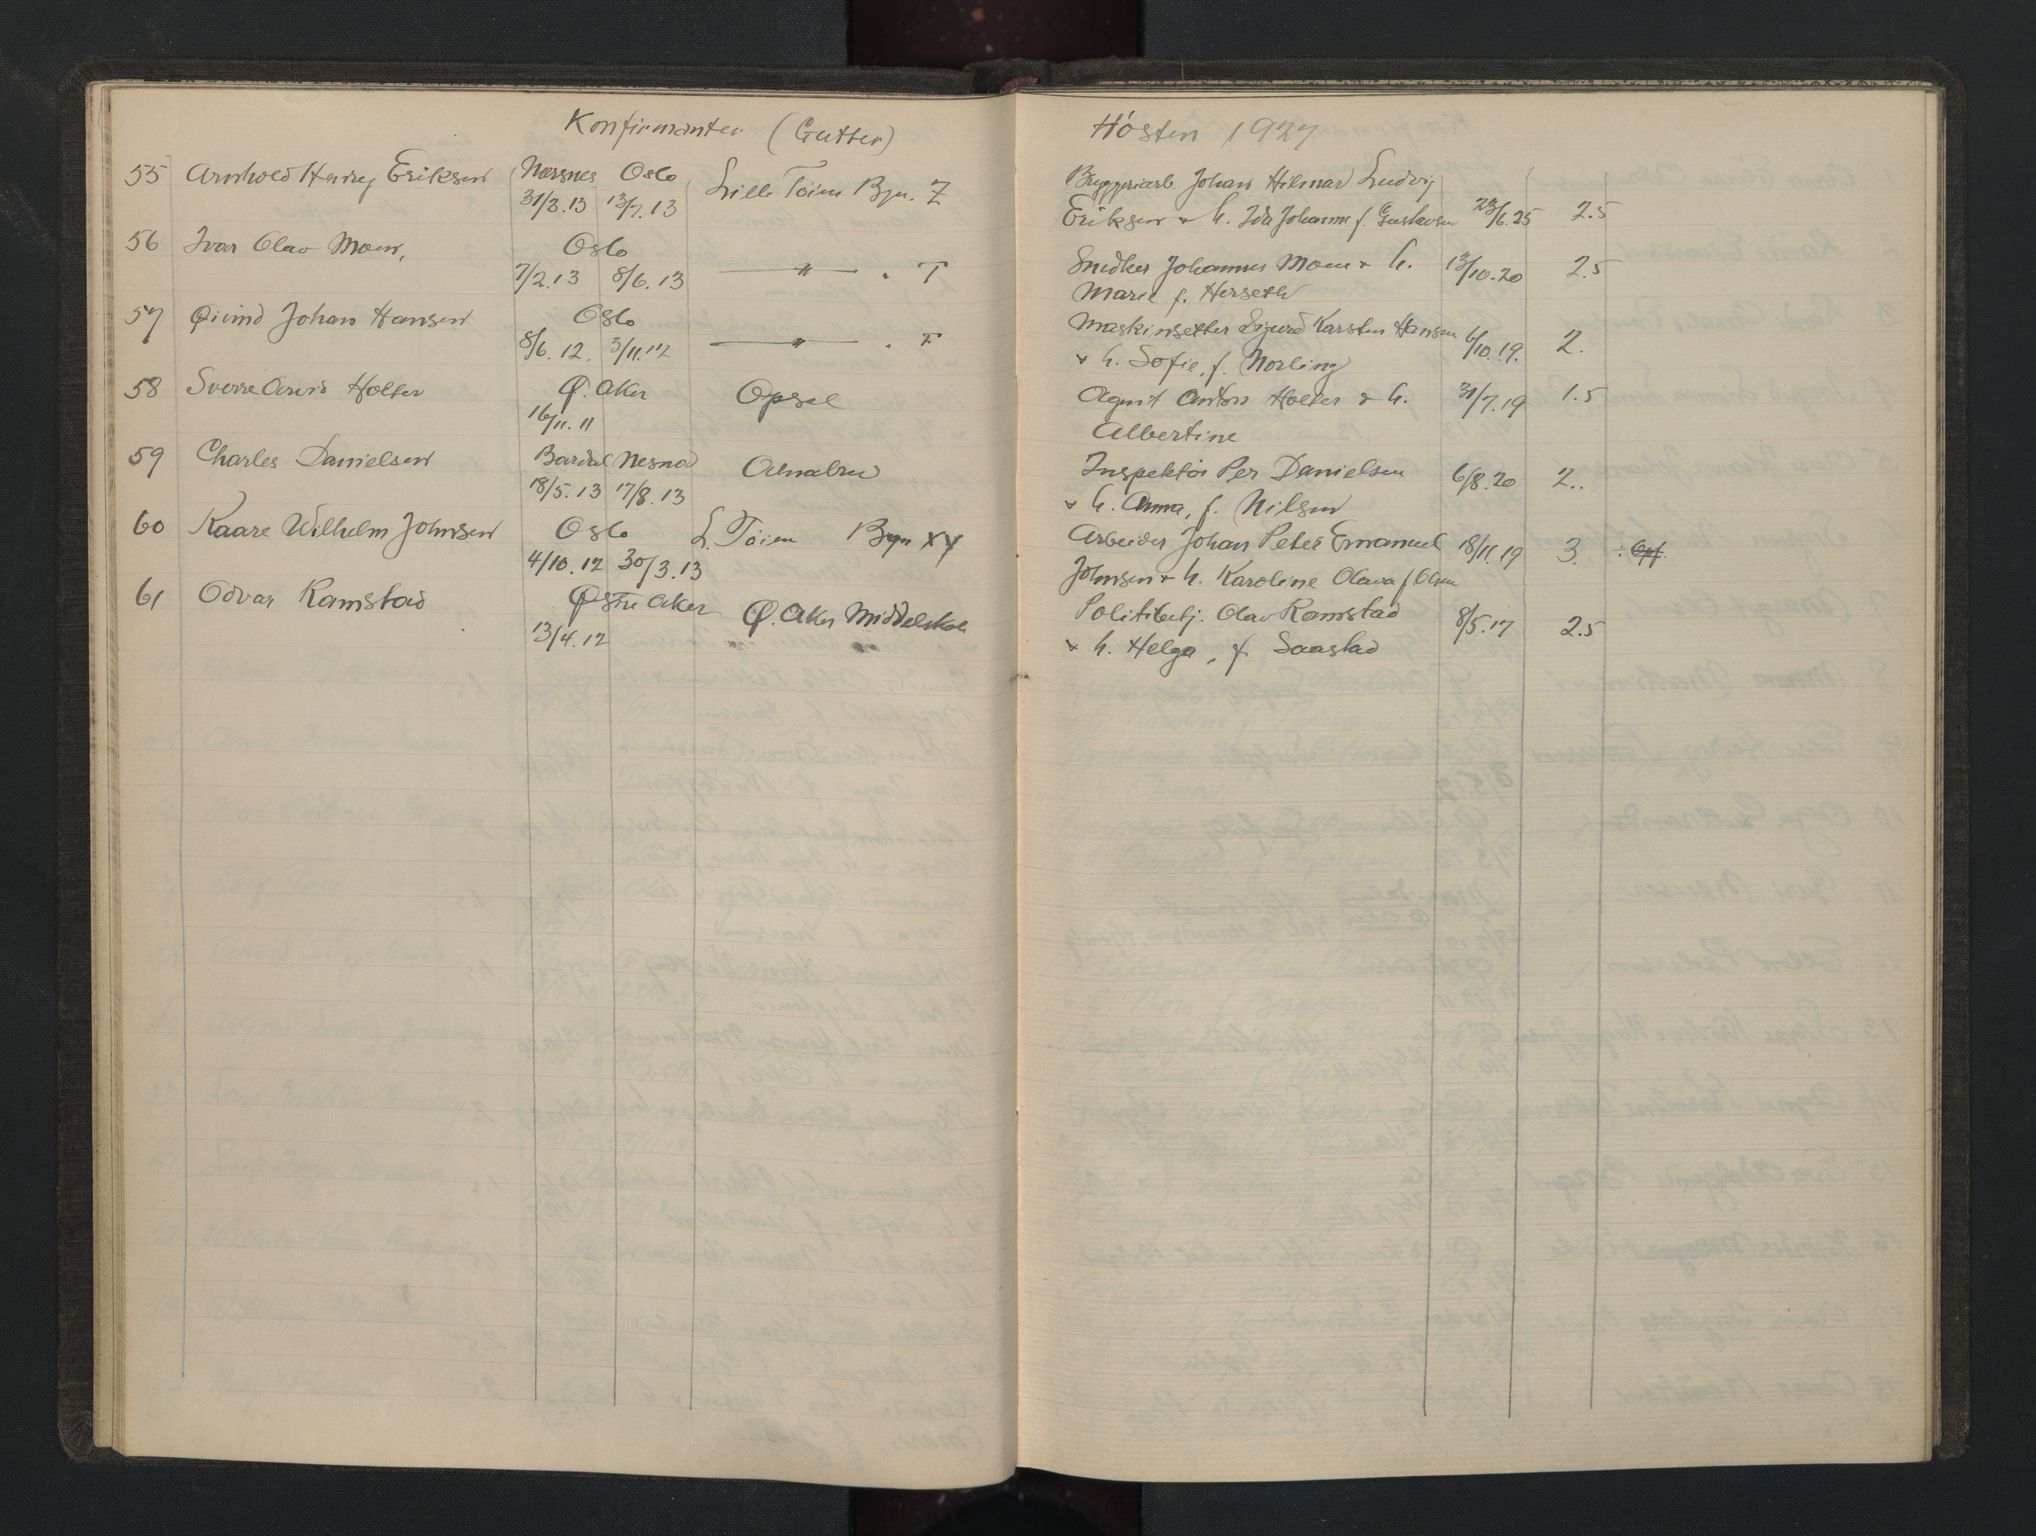 Konfirmanter (Gutter)
55 Arnhold Henry Eriksen Nærsnes Oslo Lille Tøien Bgn. Z
31/3.13 13/7.13
56 Ivar Olav Moen, Oslo
7/2.13 8/6.13 — " — . T
57 Øivind Johan Hansen Oslo
8/6.12. 3/11.12 — " — . F
58 Sverre Arvid Holter Ø. Aker Opsal
16/11.11
59 Charles Danielsen Bardal Nesna Alnabru
18/5.13 17/8.13
60 Kaare Wilhelm Johnsen Oslo L. Tøien Bgn XY
4/10.12 30/3.13
61 Odvar Ramstad Østre Aker Ø. Aker Middelskole
13/4.12
Høsten 1927
Bryggeriarb. Johan Hilmar Ludvig
Eriksen & h. Ida Johanne f. Gustavsen 23/6.25 2.5
Snedker Johannes Moen & h. 13/10.20 2.5
Marie f. Herseth
Maskinsetter Sigurd Karsten Hansen 6/10.19. 2.
& h. Sofie, f. Norling
Agent Anton Holter & h. 31/7.19 1.5
Albertine
Inspektør Per Danielsen 6/8.20 2..
& h. Anna, f. Nilsen
Arbeider Johan Peter Emanuel 18/11.19 3.
Johnsen & h. Karoline Olava f Olsen
Politibetj. Olav Ramstad 8/5.17 2.5
& h. Helga, f. Saastad